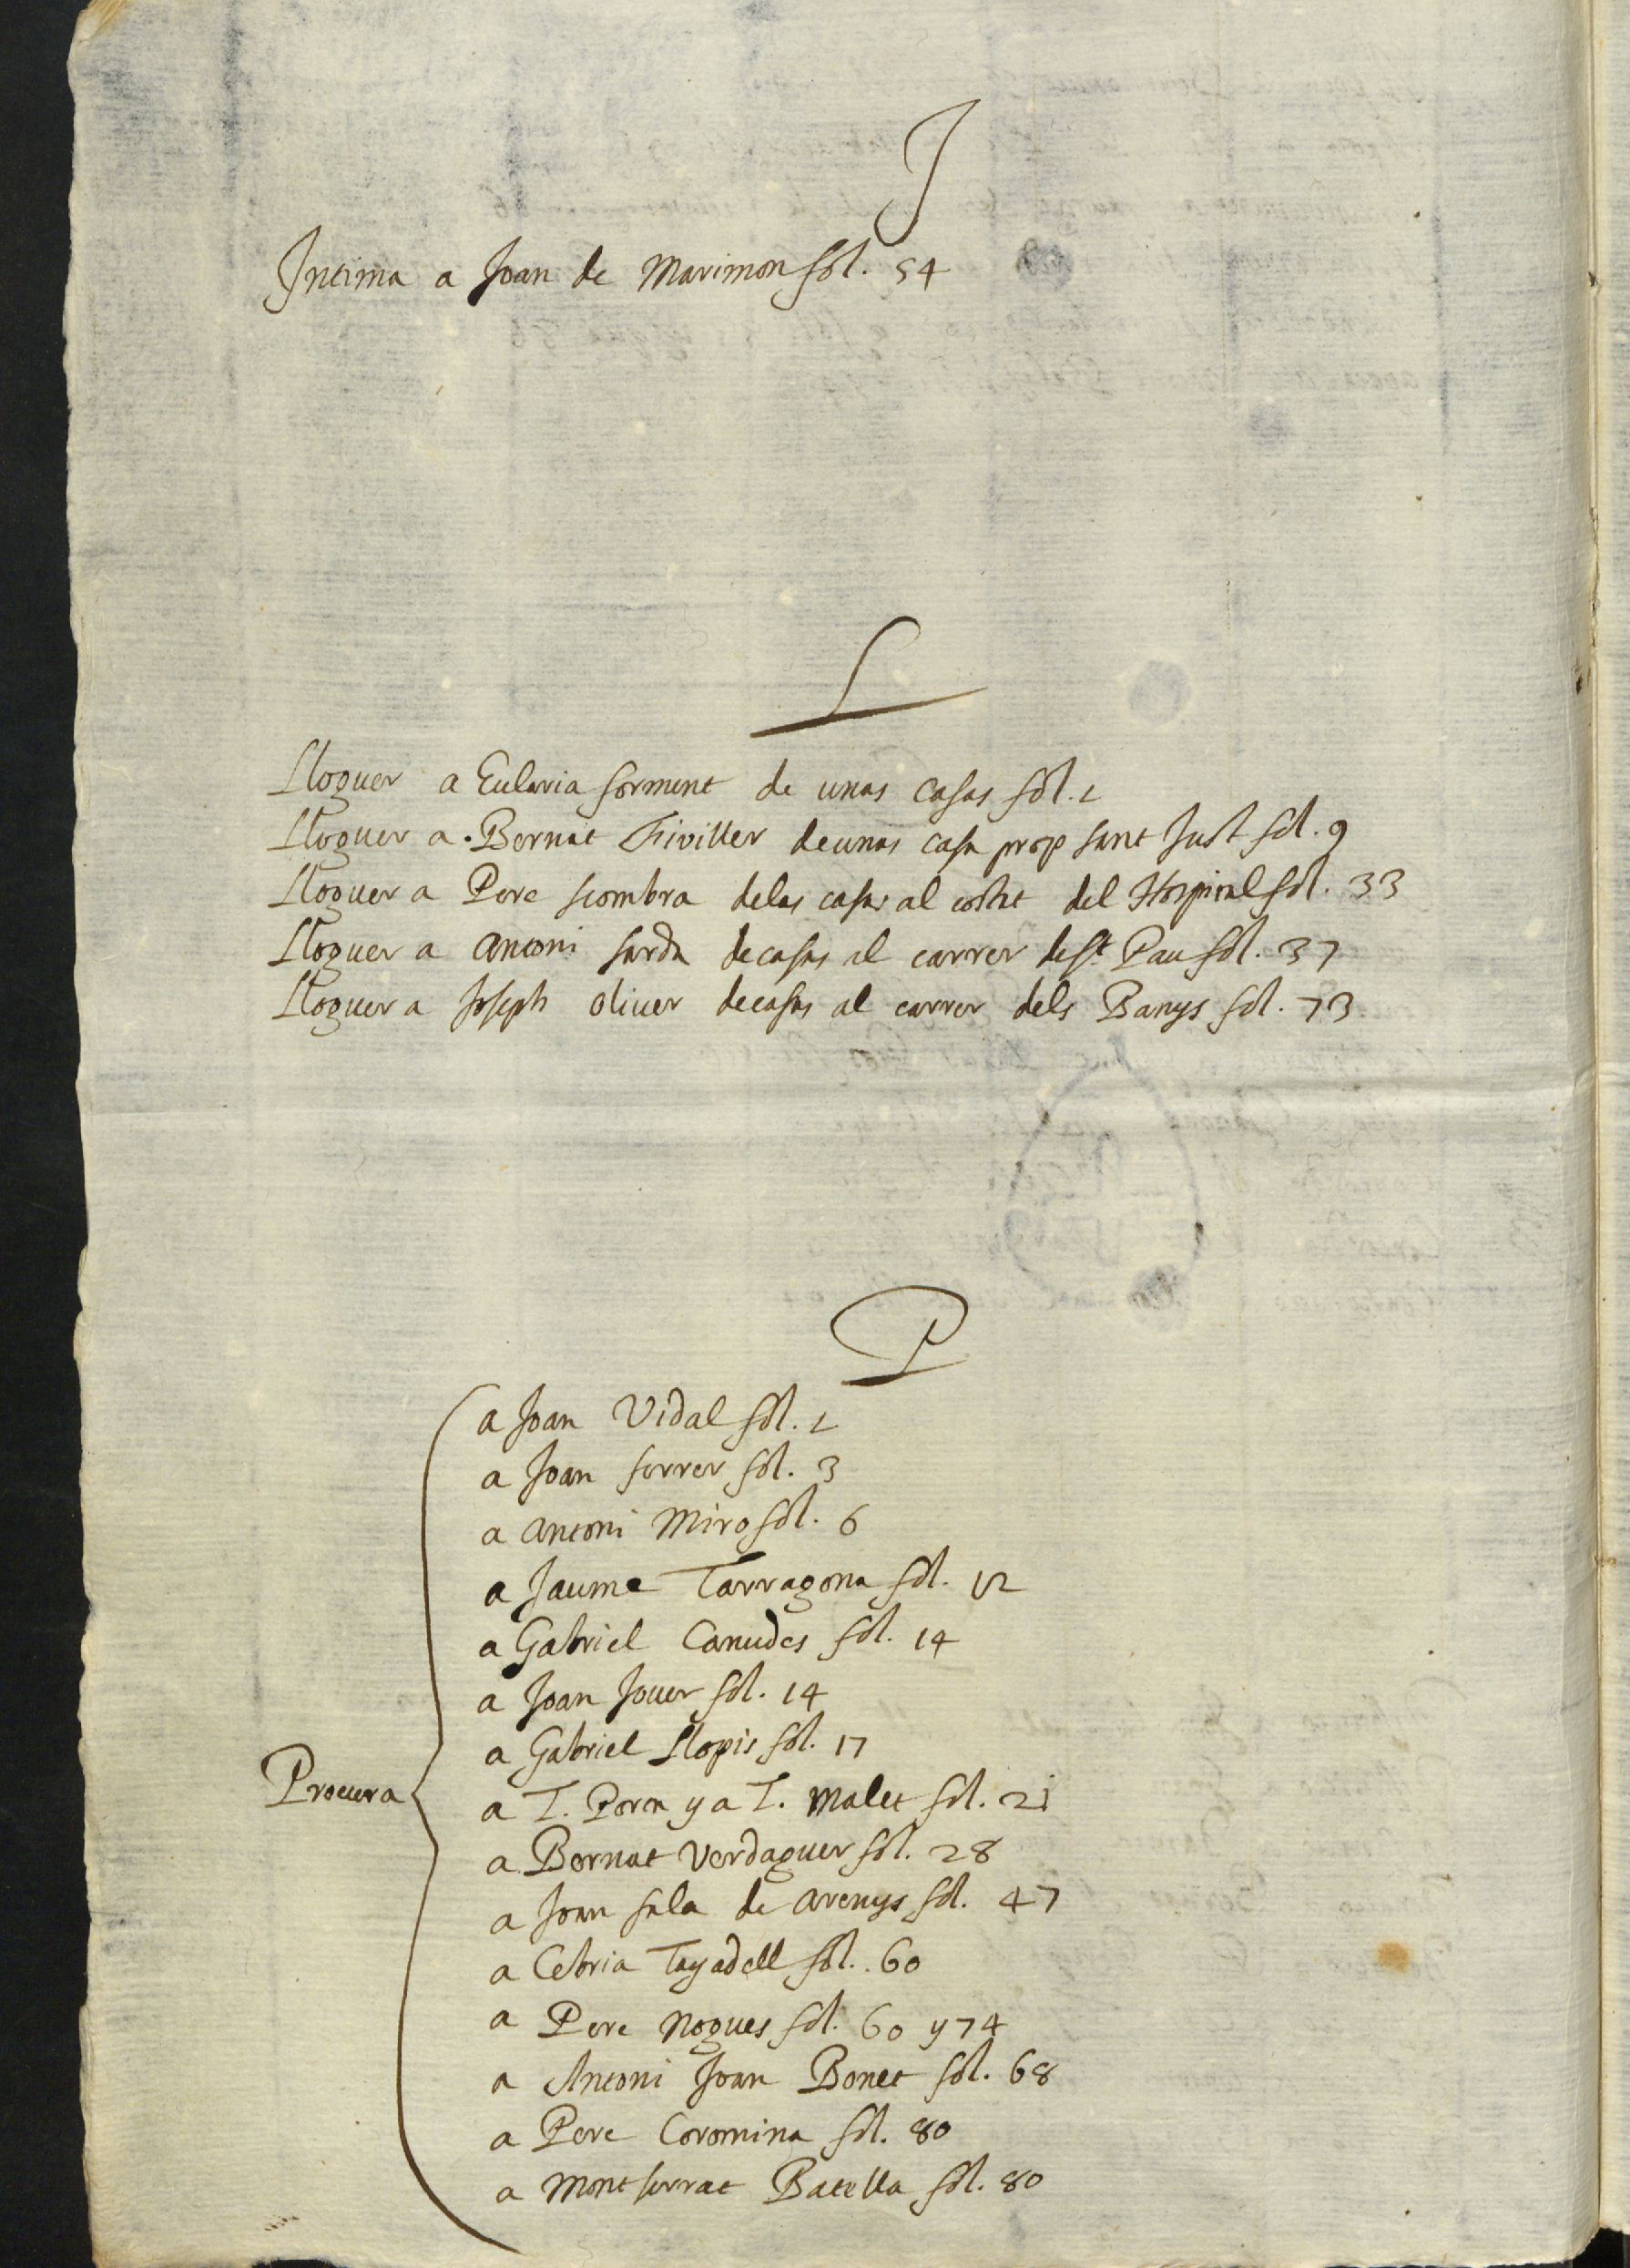 J
Intima a Joan de Marimon fol. 54
L
Lloguer a Eularia forment de unas casas fol. 1
Lloguer a Bernat Fiviller de unas casa prop sant Just fol. 9
Lloguer a Pere scombra de las casas al costat del Hospital fol. 33
Lloguer a Antoni sarda de casas al carrer de St. Pau fol. 37
Lloguer a Joseph oliver de casas al carrer dels Banys fol. 73
P
Procura
a Joan Vidal fol. 1
a Joan ferrer fol. 3
a Antoni Miro fol. 6
a Jaume Tarragona fol. 12
a Gabriel Canudes fol. 14
a Joan Jover fol. 14
a Gabriel Llopis fol. 17
a T. Pera y a T. Malet fol. 21
a Bernat Verdaguer fol. 28
a Joan sala de Arenys fol. 47
a Cebria Tayadell fol. 60
a Pere Nogues fol. 60 y 74
a Antoni Joan Bonet fol. 68
a Pere Coromina fol. 80
a Montserrat Batella fol. 80